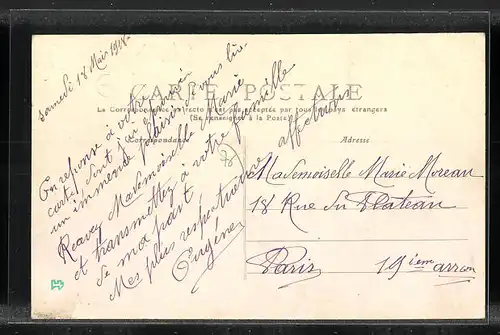 Samedi 18 Mai 1918
CARTE POSTALE
La Correspondance au recto n'est pas acceptée par tous les pays étrangers
(Se renseigner à la Poste)
Correspondance
Adresse
En reponse à votre
carte, dont j'ai éprouvé
un immense plaisir à vous lire
Recevez Mademoiselle Marie
et transmettez à votre famille
de ma part
Mes plus respectueuse affections
Eugène
Mademoiselle Marie Moreau
18 Rue du Plateau
Paris 19ième arron